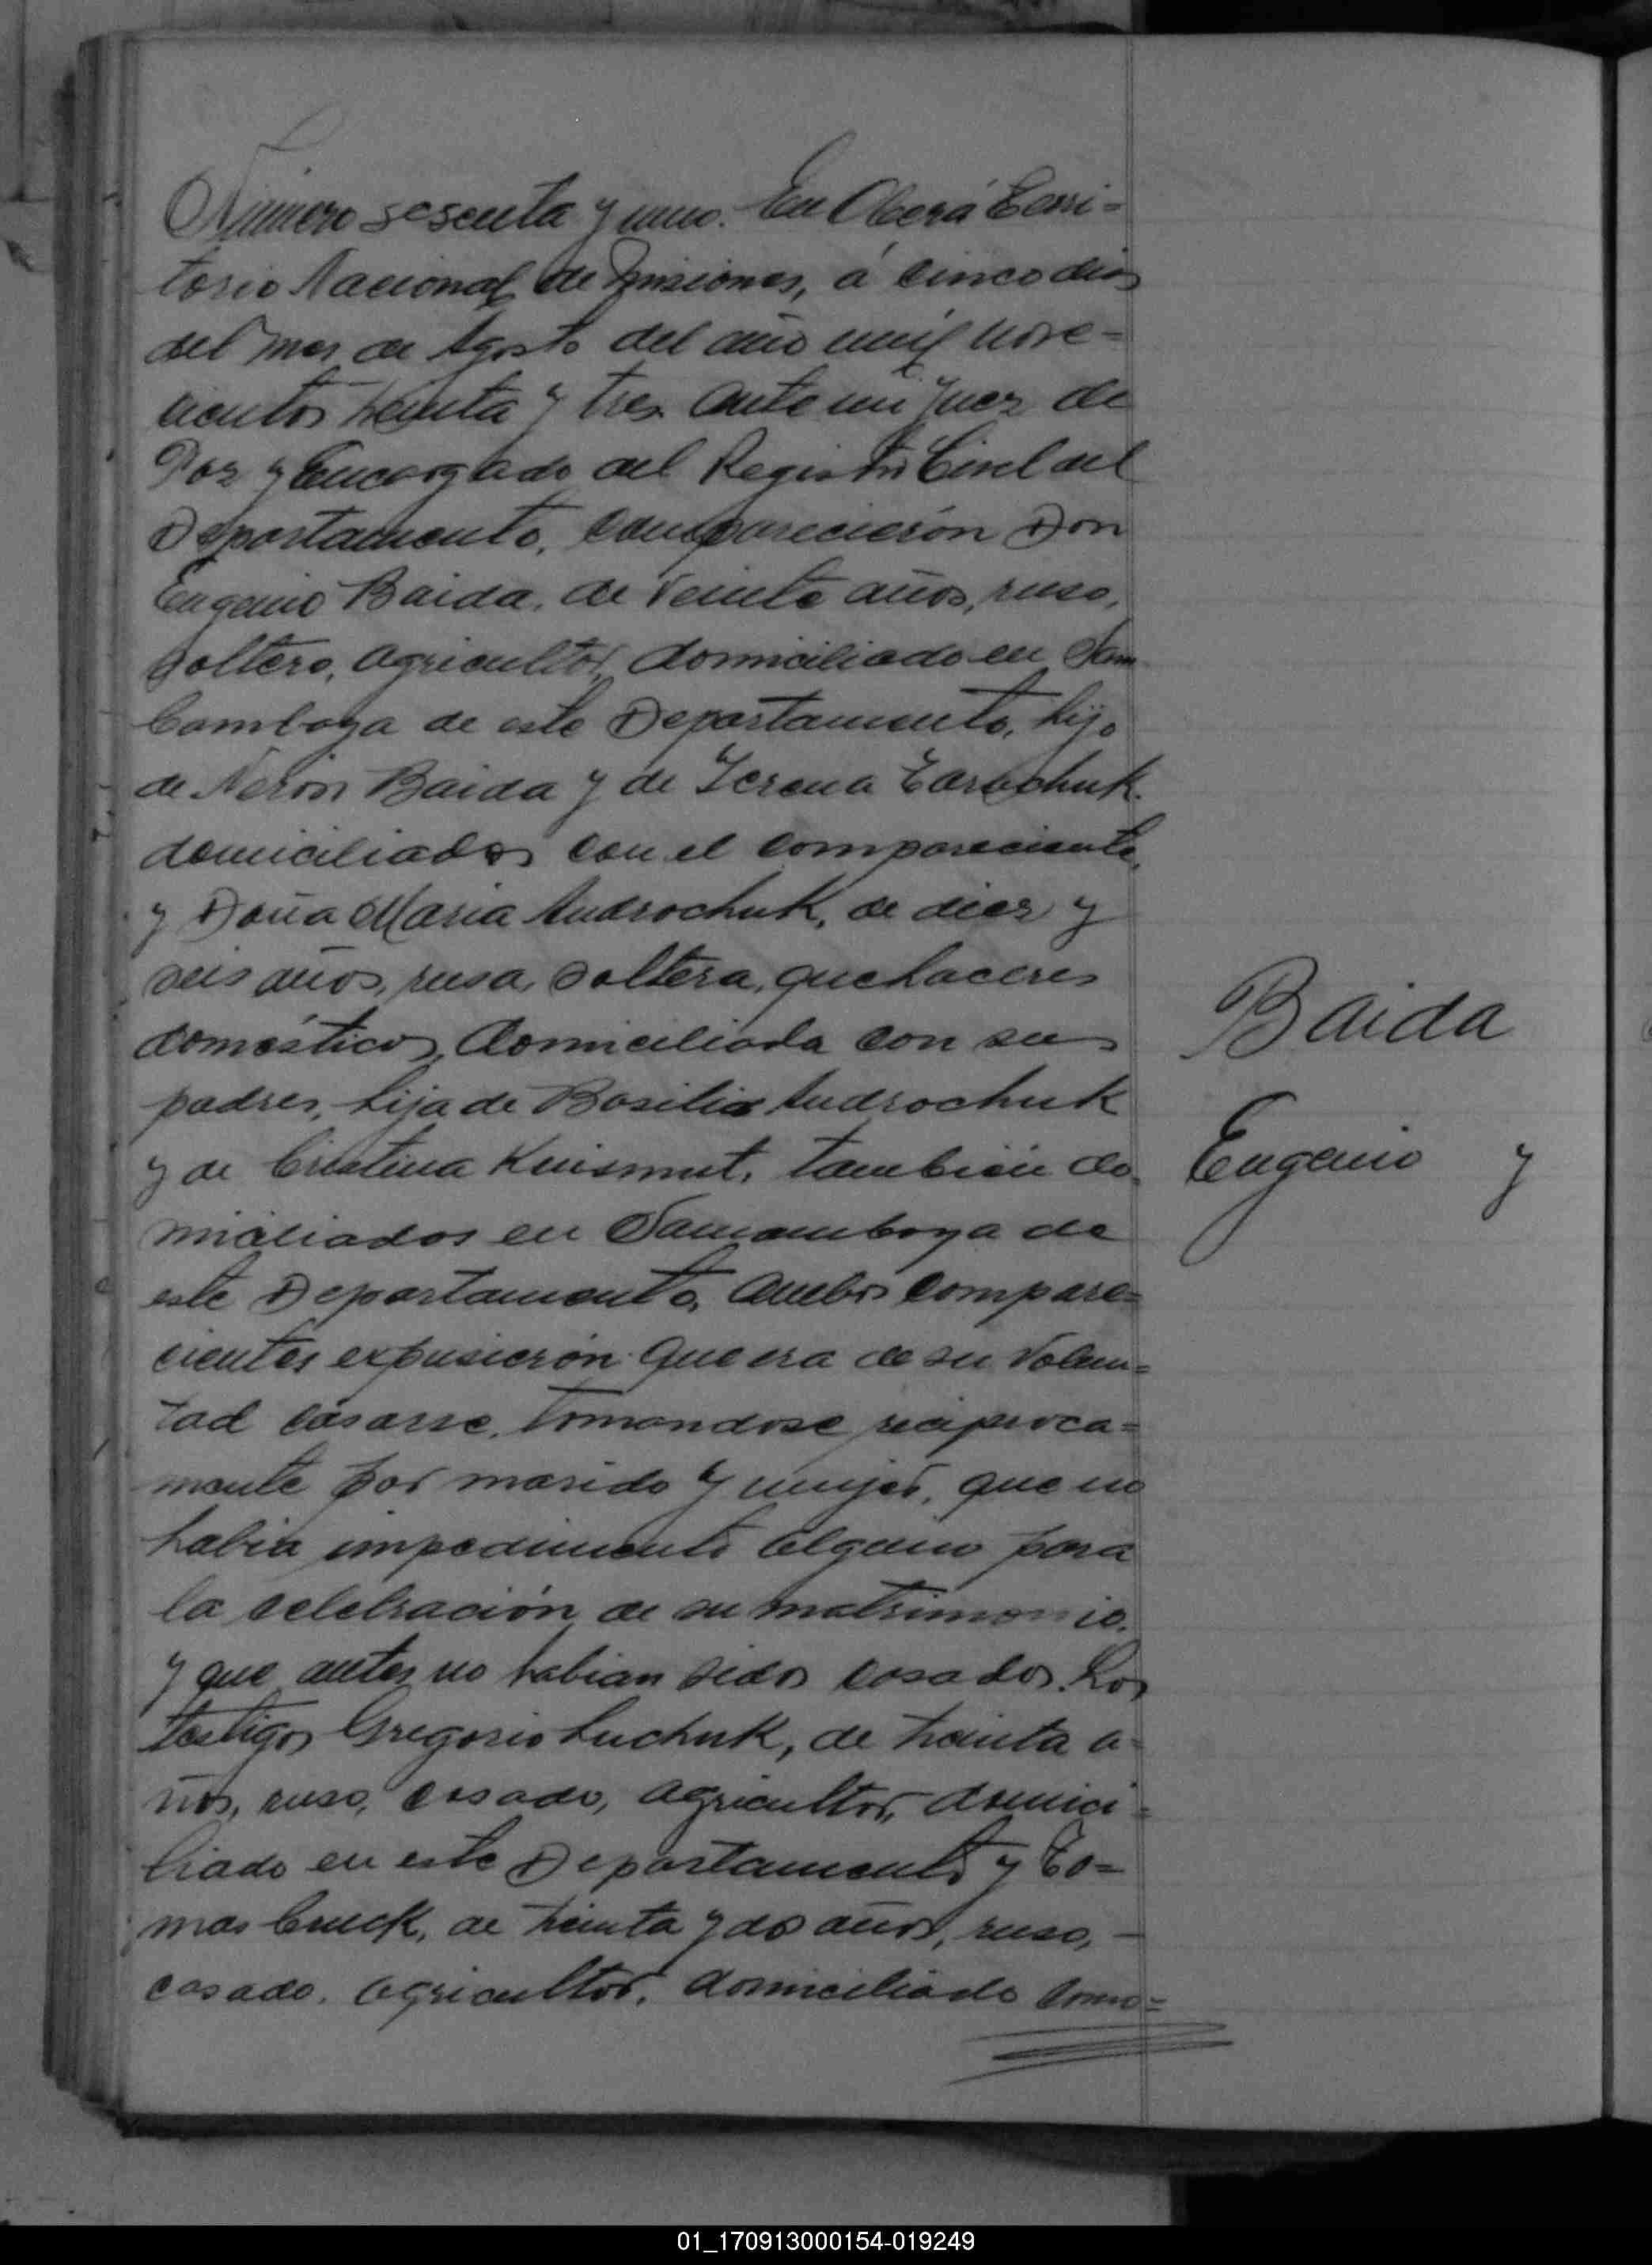 Número sesenta y uno. En Oberá Terri=
torio Nacional de Misiones, á cinco dias
del mes de Agosto del año mil nove=
cientos treinta y tres ante mi Juez de
Paz y Encargado del Registro Civil del
Departamento, comparecierón Don
Eugenio Baida, de veinte años, ruso,
soltero, agricultor, domiciliado en Sam
bamboya de este Departamento, hijo
de Nerón Baida y de
domiciliados con el compareciente,
y Doña Maria Androchuk, de diez y
seis años, rusa, soltera, quehaceres
domésticos, domiciliada con sus
padres, hija de Basilio Androchuk
y de Cristina también do
miciliados en Samambaya de
este Departamento. Ambos compare=
cientes expusierón que era de su volun=
tad casarse, tomandose reciproca=
mente por marido y mujer, que no
habia impedimento alguno para
la celebración de su matrimonio,
y que antes no habian sidos casados. Los
testigos Gregorio Luchuk, de treinta a=
ños, ruso, casado, agricultor, domici=
liado en este Departamento y To=
mas de treinta y dos años, ruso, —
casado, agricultor, domiciliado como=
Baida
Eugenio y
01_170913000154-019249